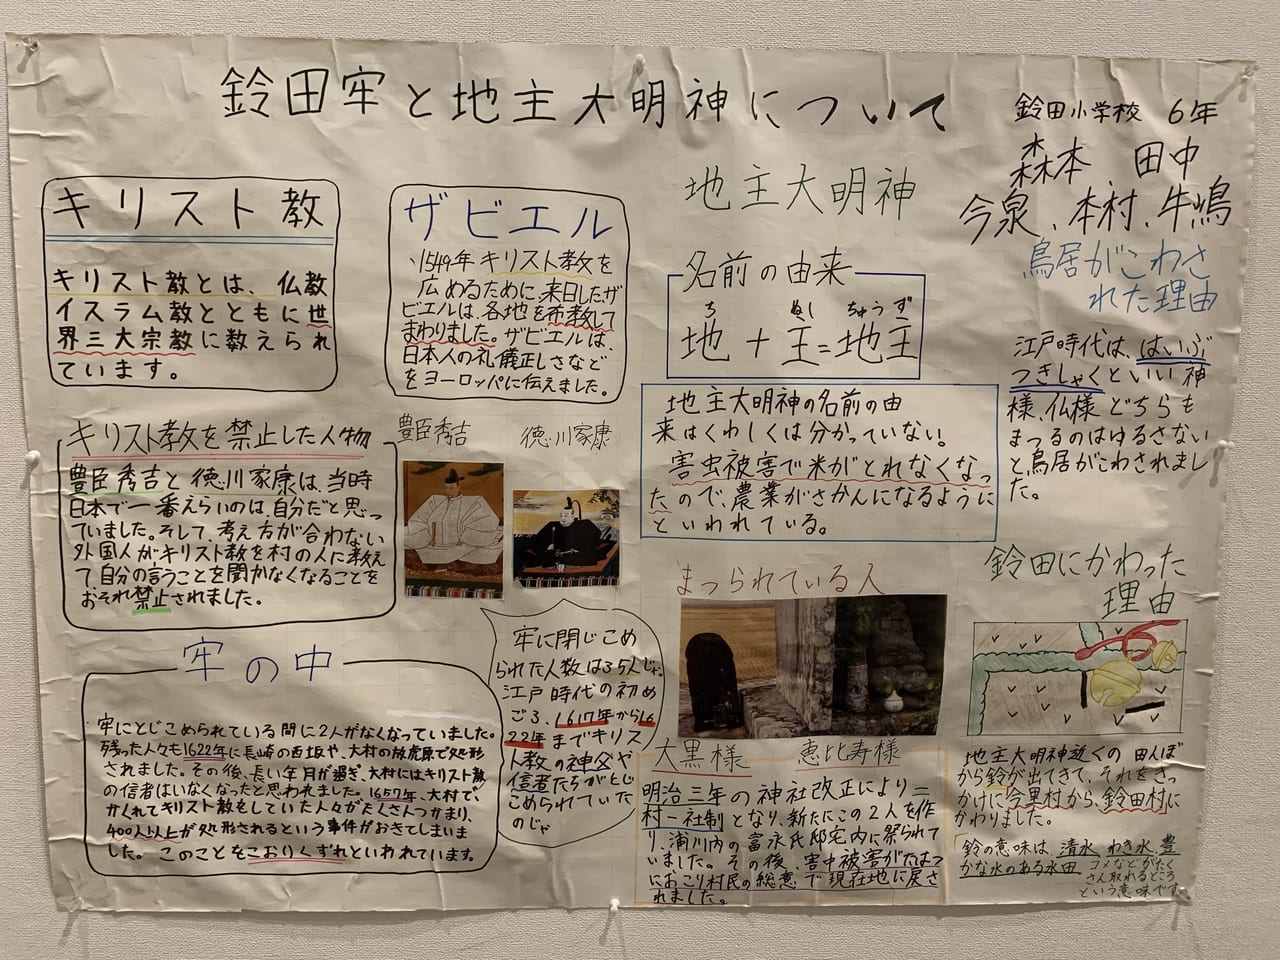 鈴田牢と地主大明神について
鈴田小学校 6年
森本、田中
今泉、本村、牛嶋
キリスト教
キリスト教とは、仏教
イスラム教とともに世
界三大宗教に数えられ
ています。
ザビエル
、1549年キリスト教を
広めるために来日したザ
ビエルは、各地を布教して
まわりました。ザビエルは、
日本人の礼儀正しさなど
をヨーロッパに伝えました。
キリスト教を禁止した人物
豊臣秀吉と徳川家康は、当時
日本で一番えらいのは、自分だと思っ
ていました。そして、考え方が合わない
外国人がキリスト教を村の人に教え
て、自分の言うことを聞かなくなることを
おそれ禁止されました。
豊臣秀吉
徳川家康
牢の中
牢にとじこめられている間に2人がなくなっていました。
残った人々も1622年に長崎の西坂や、大村の放虎原で処形
されました。その後、長い年月が過ぎ、大村にはキリスト教
の信者はいなくなったと思われました。1657年、大村で、
かくれてキリスト教をしていた人々がたくさんつかまり、
400人以上が処形されるという事件がおきてしまいま
した。このことをこおりくずれといわれています。
牢に閉じこめ
られた人数は35人じゃ。
江戸時代の初め
ごろ、1617年から16
22年までキリス
ト教の神父や
信者たちがとじ
こめられていた
のじゃ
地主大明神
名前の由来
ち ぬし ちゅうず
地+主=地主
地主大明神の名前の由
来はくわしくは分かっていない!
害虫被害で米がとれなくなっ
たので、農業がさかんになるように
といわれている。
まつられている人
大黒様
恵比寿様
明治三年の神社改正により二
村一社制となり、新たにこの2人を作
り、浦川内の富永氏邸宅内に祭られて
いました。その後、害中被害がたはつ
におこり村民の総意で現在地に戻さ
れました。
鳥居がこわさ
れた理由
江戸時代は、はいぶ
つきしゃくといい神
様、仏様どちらも
まつるのはゆるさない
と鳥居がこわされまし
た。
鈴田にかわった
理由
地主大明神近くの田んぼ
から鈴が出てきて、それをきっ
かけに今里村から、鈴田村に
かわりました。
「鈴の意味は、清水、わき水、豊
かな水のある水田
コメなどがたく
さん取れるところ
という意味です